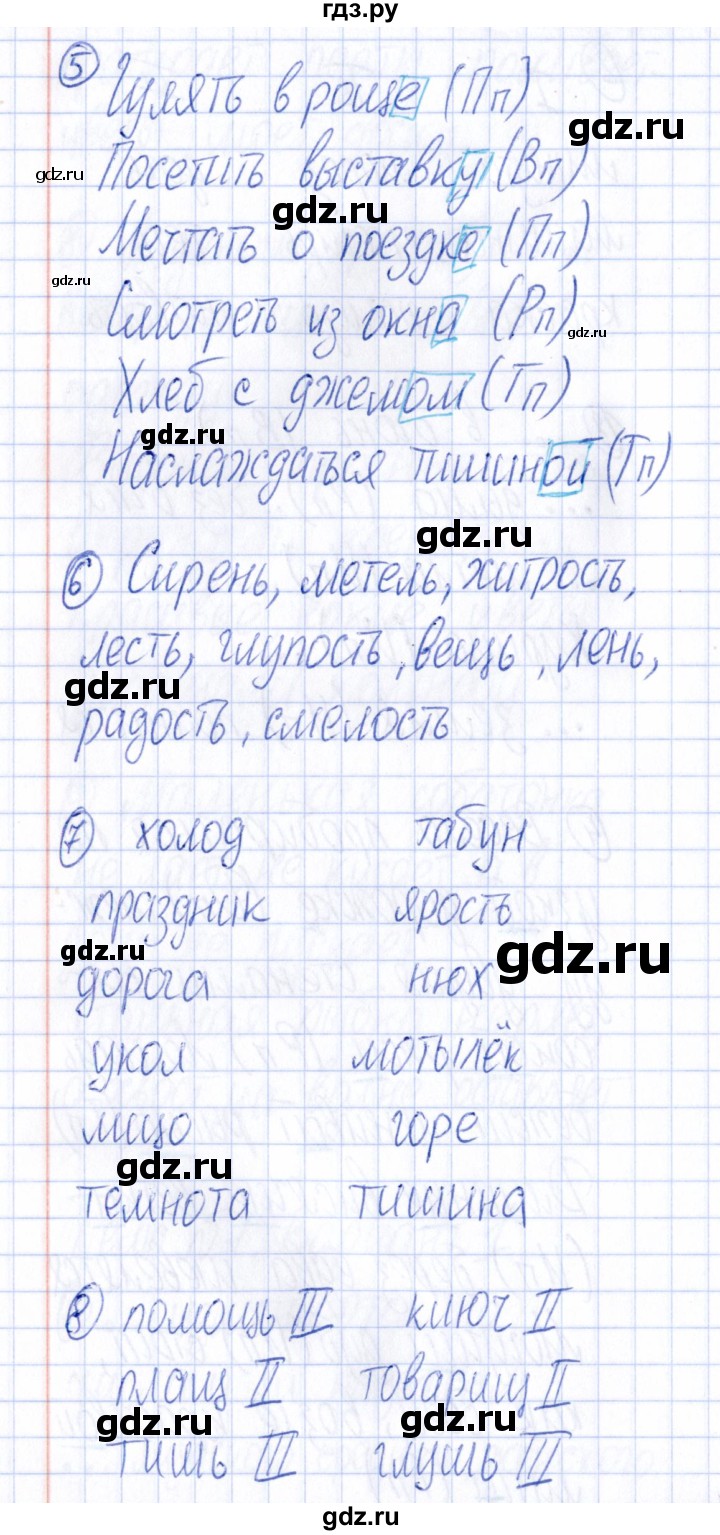 гдз.ру
5 Гулять в роще (Пп)
gdz.ru
gdz.ru
Посетить выставку (Вп)
gdz.ru
Мечтать о поездке (Пп)
gdz.ru
Смотреть из окна (Рп)
gdz.ru
Хлеб с джемом (Тп)
gdz.ru
Наслаждаться тишиной (Тп)
gdz.ru
6 Сирень, метель, хитрость,
лесть, глупость, вещь, лень,
gdz.ru
радость, смелость
7 холод табун
праздник ярость
gdz.ru
gdz.ru
дорога нюх
укол мотылёк
лицо горе
gdz.ru
темнота тишина
8 помощь III ключ II
плащ II товарищ II
gdz.ru
gdz.ru
тишь III глушь III
gdz.ru